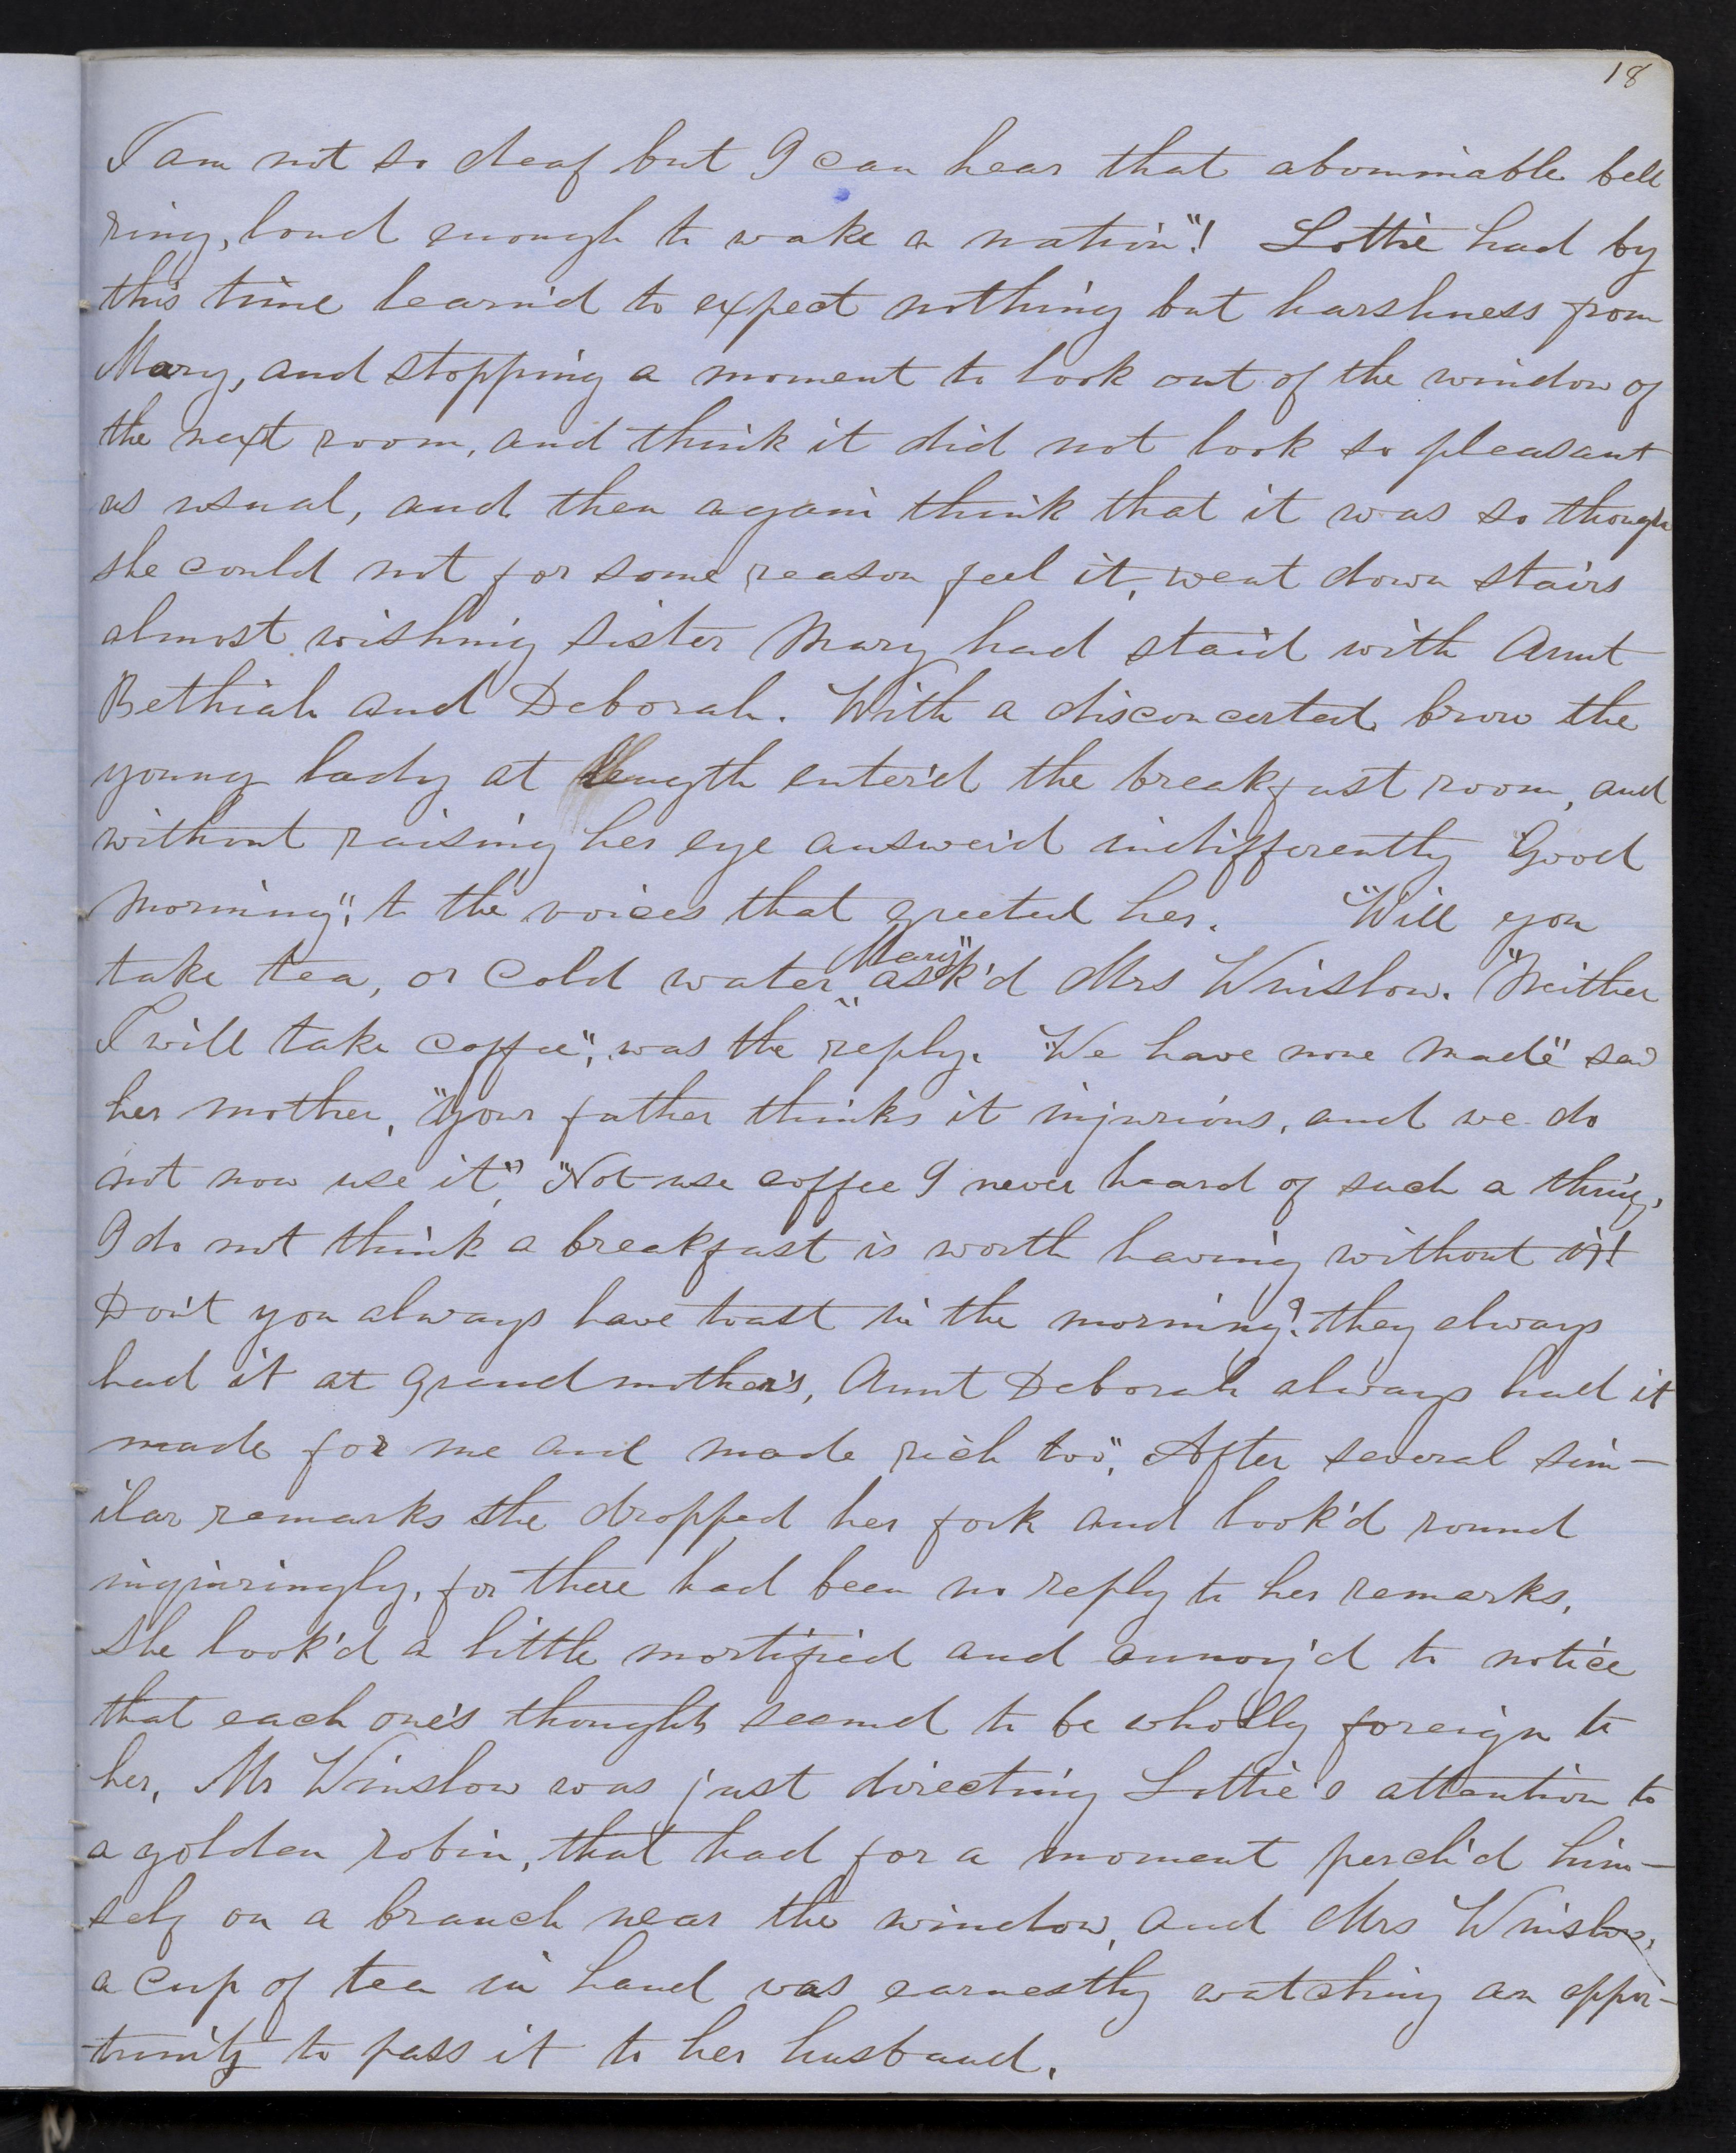 18
I am not so deaf but I can hear that abominable bell
ring, loud enough to wake a nation"! Lottie had by
this time learn'd to expect nothing but harshness from
Mary, and stopping a moment to look out of the window of
the next room, and think it did not look so pleasant
as usual, and then again think that it was so though
she could not for some reason feel it, went down stairs
almost wishing sister Mary had staid with Aunt
Bethiah and Deborah. With a disconcerted brow the
young lady at length enter'd the breakfast room, and
without raising her eye answer'd indifferently "Good
morning", to the voices that greeted her. "Will you
take tea, or cold water Mary" ask'd Mrs Winslow. "Neither
I will take coffee", was the reply. "We have none made" said
her mother, "your father thinks it injurious, and we do
not now use it". "Not use coffee I never heard of such a thing,
I do not think a breakfast is worth having without it!
Don't you always have toast in the morning? they always
had it at grandmother's, Aunt Deborah always had it
made for me and made rich too". After several sim-
ilar remarks she dropped her fork and look'd round
inquiringly, for there had been no reply to her remarks,
she look'd a little mortified and annoy'd to notice
that each one's thoughts seemed to be wholly foreign to
her, Mr Winslow was just directing Lottie's attention to
a golden robin, that had for a moment perch'd him-
self on a branch near the window, and Mrs Winslow,
a cup of tea in hand was earnestly watching an oppor-
tunity to pass it to her husband.